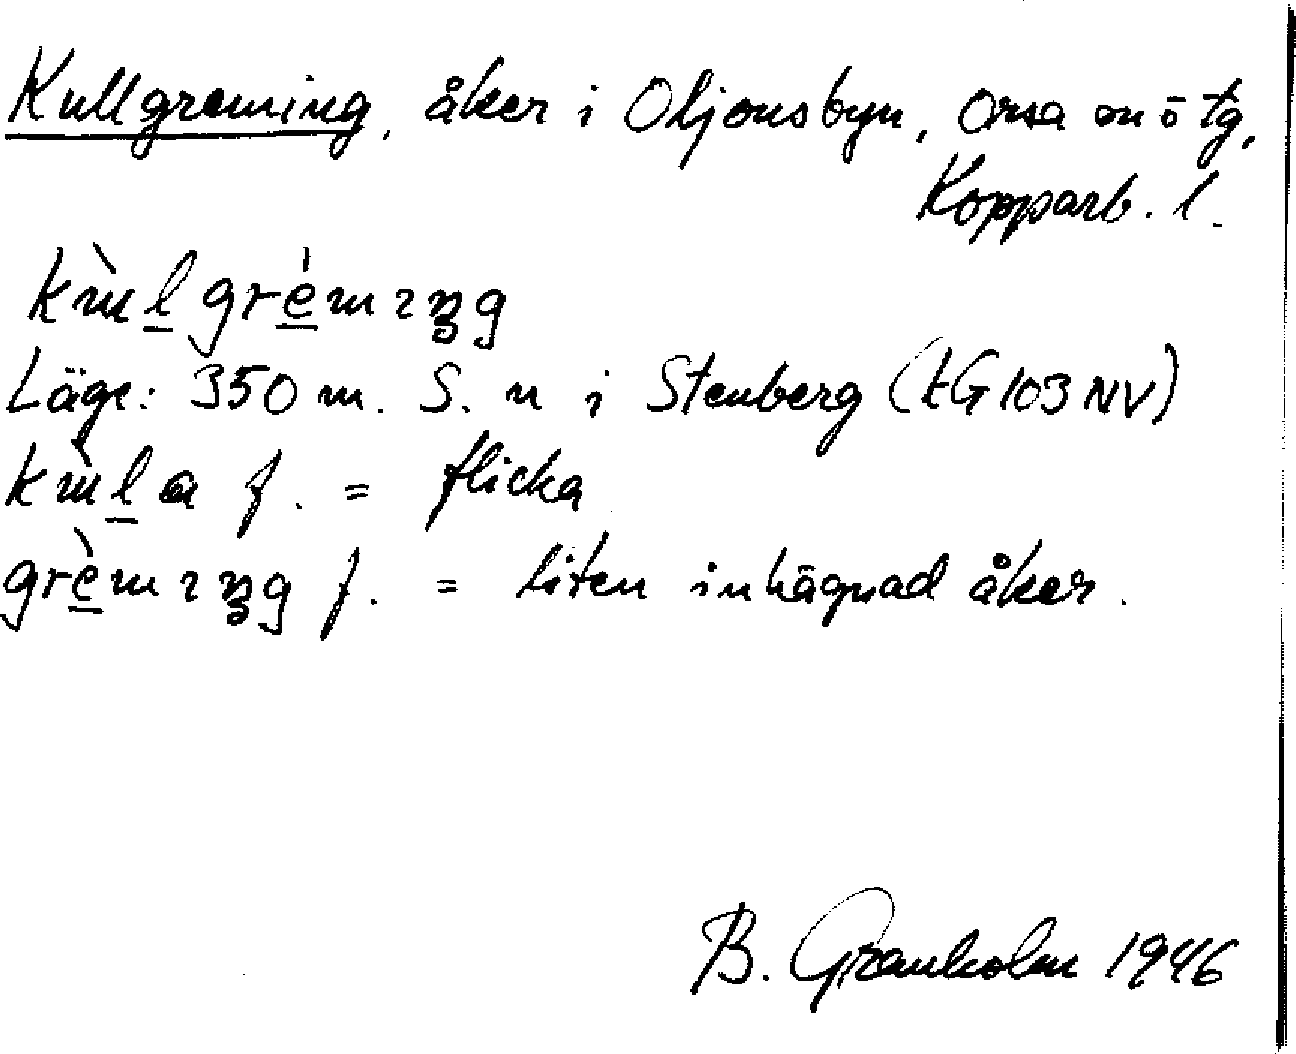 Kullgreming, åker i Oljonsbyn, Orsa sn o tg,
Kopparb. l.
Läge: 350 m. S. n i Stenberg (tG 103 NV)
f. = flicka
f. = liten inhägnad åker.
B. Granholm 1946